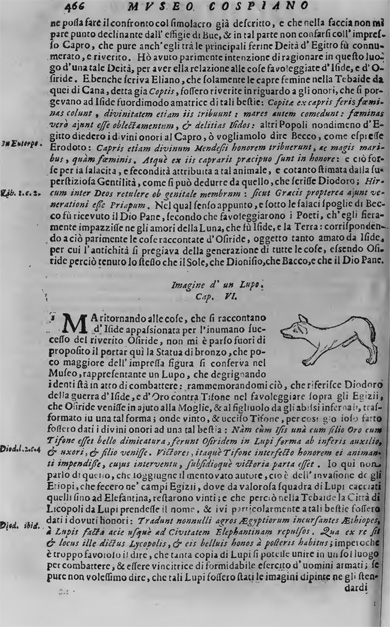 466 MVSEO COSPIANO
ne possa fare il confronto col simolacro già descritto, e che nella faccia non mi
pare punto declinante dall'effigie di Bue, & in tal parte non confarsi coll'impres-
so Capro, che pure anch'egli trà le principali ferine Deità d'Egitto fù connu-
merato, e riverito. Hò avuto parimente intenzione di ragionare in questo luo-
go d'una tale Deità, per aver ella relazione alle cose favoleggiate d'Iside, e d'O-
siride. E benche scriva Eliano, che solamente le capre femine nella Tebaide da
quei di Cana, detta già Coptis, fossero riverite in riguardo a gli onori, che si por-
gevano ad Iside fuordimodo amatrice di tali bestie: Coptitæ ex capris feris fœmi-
nas colunt, divinitatem etiam iis tribuunt; mares autem comedunt: fœminas
verò ajunt esse oblectamentum, & delitias Isidos: altri Popoli nondimeno d'E-
gitto diedero i divini onori al Capro, ò vogliamolo dire Becco, come espresse
In Euterpe. Erodoto: Capris etiam divinum Mendesii honorem tribuerunt, ac magis mari-
bus, quàm fœminis. Atque ex iis caprarii præcipuo sunt in honore: e ciò fos-
se per la salacità, e secondità attribuita a tal animale, e cotanto stimata dalla su-
perstiziosa Gentilità, come si può dedurre da quello, che scrisse Diodoro; Hir-
Lib. 1. c. 2. cum inter Deos retulere ob genitale membrum: sicut Græcis propterea ajunt ve-
nerationi esse Priapum. Nel qual senso appunto, e sotto le fallaci spoglie di Bec-
co fù ricevuto il Dio Pane, secondo che favoleggiarono i Poeti, ch'egli fiera-
mente impazzisse ne gli amori della Luna, che fù Iside, e la Terra: corrisponden-
do a ciò parimente le cose raccontate d'Osiride, oggetto tanto amato da Iside,
per cui l'antichità si pregiava della generazione di tutte le cose, essendo Osi-
ride perciò tenuto lo stesso che il Sole, che Dionisio, che Bacco, e che il Dio Pane.
Imagine d'un Lupo.
Cap. VI.
MA ritornando alle cose, che si raccontano
d'Iside appassionata per l'inumano suc-
cesso del riverito Osiride, non mi è parso fuori di
proposito il portar quì la Statua di bronzo, che po-
co maggiore dell'impressa figura si conserva nel
Museo, rappresentante un Lupo, che degrignando
i denti stà in atto di combattere: rammemorandomi ciò, che riferisce Diodoro
della guerra d'Iside, e d'Oro contra Tifone nel favoleggiare sopra gli Egizii,
che Osiride venisse in ajuto alla Moglie, & al figliuolo da gli abissi infernali, tras-
formato in una tal forma; onde vinto, & ucciso Tifone, per così gioioso fatto
fossero dati i divini onori ad una tal bestia: Nàm cùm Isis unà cum filio Oro cum
Diod. l. 2. c. 4 Tifone esset bello dimicatura, ferunt Osiridem in Lupi forma ab inferis auxilio,
& uxori, & filio venisse. Victores, itaque Tifone interfecto honorem ei animan-
ti impendisse, cujus interventu, subsidioque victoria parta esset. Io qui non
parlo di quello, che soggiugne il mentovato autore, ciò è dell'invasione de gli
Etiopi, che fecero ne' campi Egizi, dove da valorosa squadra di Lupi cacciati
quelli sino ad Elefantina, restarono vinti; e che perciò nella Tebaide la Città di
Licopoli da Lupi prendesse il nome, & ivi particolarmente a tali bestie fossero
Diod. ibid. dati i dovuti honori: Tradunt nonnulli agros Ægyptiorum incursantes Æthiopes,
à Lupis facta acie usque ad Civitatem Elephantinam repulsos. Qua ex re sit
& locus ille dictus Lycopolis, & eis belluis honos à posteris habitus; imperoche
è troppo favoloso il dire, che tanta copia di Lupi si potesse unire in un sol luogo
per combattere, & essere vincitrice di formidabile esercito d'uomini armati; se
pure non volessimo dire, che tali Lupi fossero stati le imagini dipinte ne gli sten-
dardi